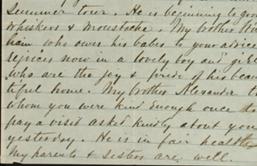 summer town. He is beginning to grow
whiskers & moustache. My brother Wil
ham who owes his babes to your advice
rejoices now in a lovely boy and girl
who are the joy & pride of his beau
tiful home. My brother Alexander to
whom you were kind enough once to
pay a visit asked kindly about you
yesterday. He is in fair health
My parents & sisters are well.